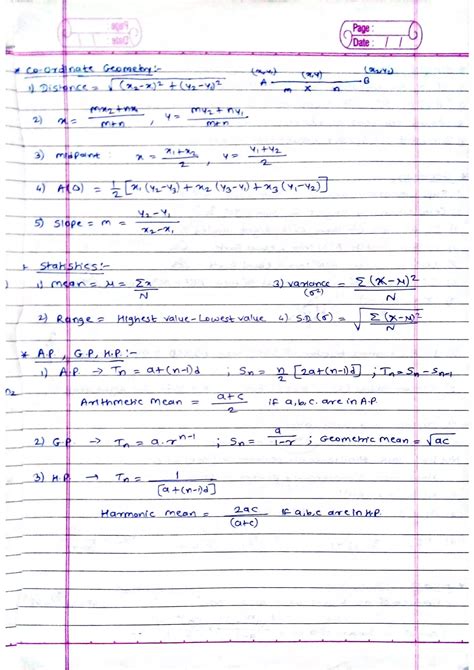 Page :
Date : / /
* Co-ordinate Geometry:-
1) Distance = √(x₂-x)² + (y₂-y₁)²
(x₁,y₁) (x,y) (x₂,y₂)
A B
m x n
2) x = (mx₂+nx₁)/(m+n) , y = (my₂+ny₁)/(m+n)
3) midpoint : x = (x₁+x₂)/2 , y = (y₁+y₂)/2
4) A(Δ) = 1/2 [x₁(y₂-y₃) + x₂(y₃-y₁) + x₃(y₁-y₂)]
5) Slope = m = (y₂-y₁)/(x₂-x₁)
Statistics:-
1) mean = μ = Σx/N 3) variance (σ²) = Σ(x-μ)²/N
2) Range = Highest value - Lowest value 4) S.D (σ) = √(Σ(x-μ)²/N)
* A.P , G.P, H.P:-
1) A.P → Tn = a+(n-1)d ; Sn = n/2 [2a+(n-1)d] ; Tn = Sn - Sn-1
Arithmetic mean = (a+c)/2 if a,b,c. are in A.P
2) G.P → Tn = a.r^(n-1) ; Sn = a/(1-r) ; Geometric mean = √ac
3) H.P → Tn = 1/[a+(n-1)d]
Harmonic mean = 2ac/(a+c) if a,b,c are in H.P.